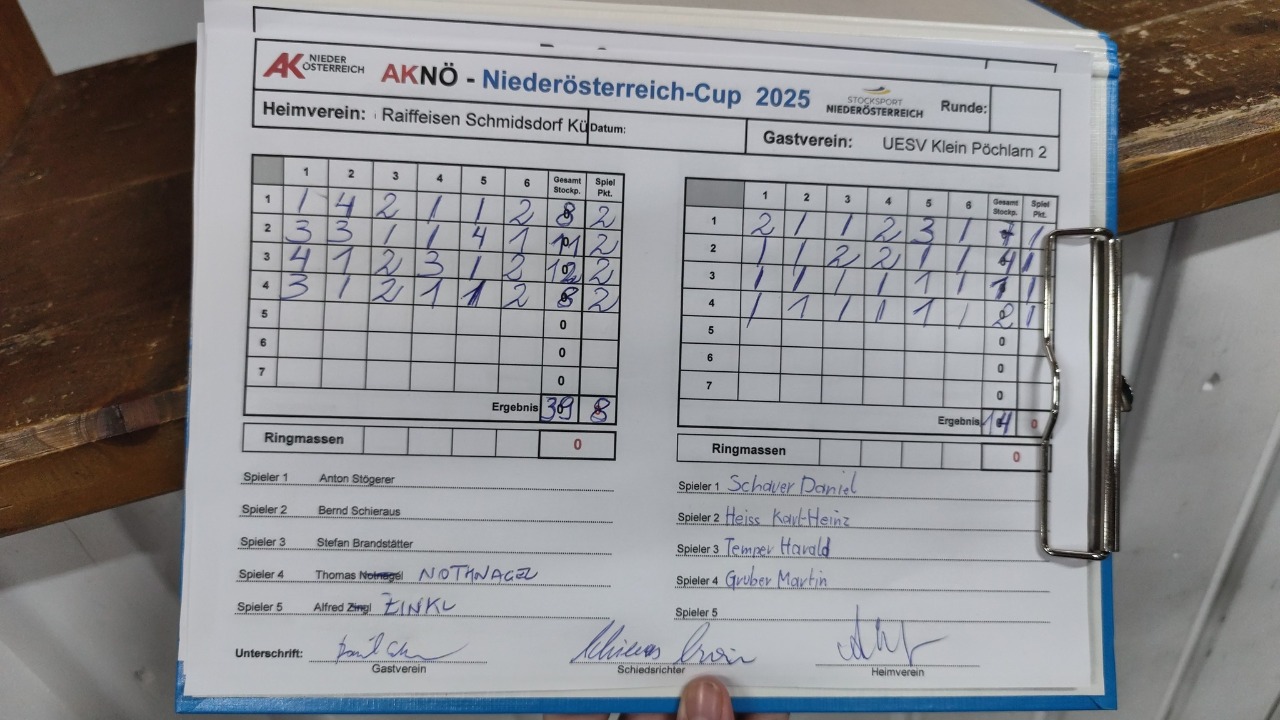 AK NIEDER ÖSTERREICH AKNÖ - Niederösterreich-Cup 2025 STOCKSPORT NIEDERÖSTERREICH Runde:
Heimverein: Raiffeisen Schmidsdorf Kü Datum: Gastverein: UESV Klein Pöchlarn 2
1 2 3 4 5 6 Gesamt Stockp. Spiel Pkt.
1 1 4 2 1 1 2 8 2
2 3 3 1 1 4 1 11 2
3 4 1 2 3 1 2 12 2
4 3 1 2 1 1 2 8 2
5 0
6 0
7 0
Ergebnis 39 8
Ringmassen 0
1 2 3 4 5 6 Gesamt Stockp. Spiel Pkt.
1 2 1 1 2 3 1 7 1
2 1 1 2 2 1 1 4 1
3 1 1 1 1 1 1 1 1
4 1 1 1 1 1 1 2 1
5 0
6 0
7 0
Ergebnis 14 0
Ringmassen 0
Spieler 1 Anton Stögerer
Spieler 2 Bernd Schieraus
Spieler 3 Stefan Brandstätter
Spieler 4 Thomas Notnagel NOTHNAGEL
Spieler 5 Alfred Zingl ZINKL
Spieler 1 Schauer Daniel
Spieler 2 Heiss Karl-Heinz
Spieler 3 Temper Harald
Spieler 4 Gruber Martin
Spieler 5
Unterschrift:
Gastverein Schiedsrichter Heimverein